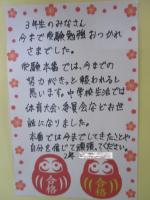 3年生のみなさん
今まで受験勉強おつかれ
さまでした。
受験本番では、今までの
努力がきっと報われると
思います。中学校生活では
体育大会・委員会などお世
話になりました。
本番では今までしてきたことや
自分を信じて頑張ってください。
2年
合格
合格